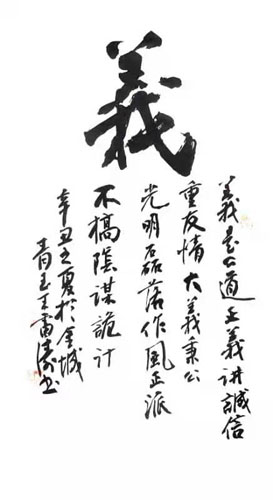 義
義是公道正義讲誠信
重友情大義秉公
光明磊落作風正派
不搞陰謀詭計
辛丑之夏於金城
青玉王雷濤书